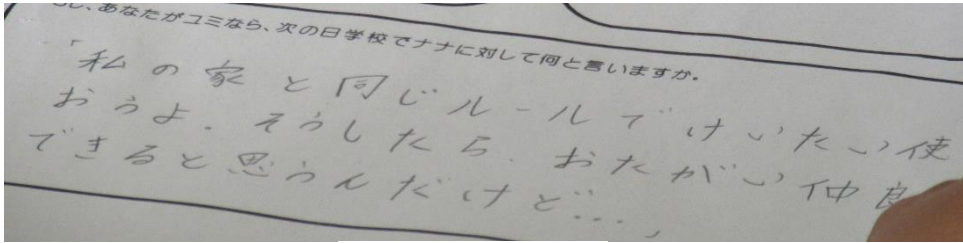 し、あなたがユミなら、次の日学校でナナに対して何と言いますか。
「私の家と同じルールでけいたい使
おうよ。そうしたら、おたがい仲良
できると思うんだけど…」